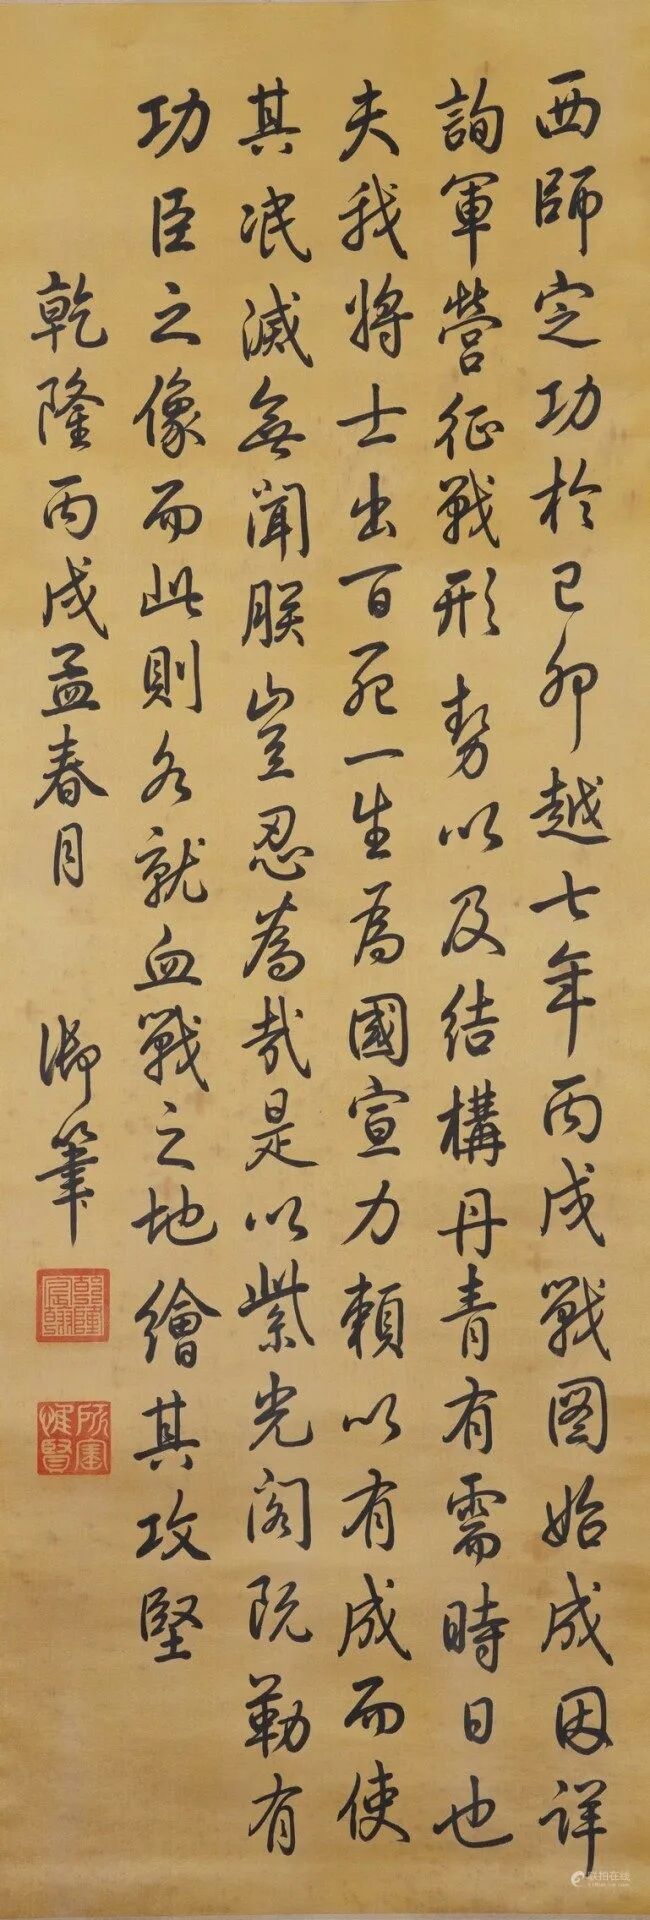 西師定功於己卯越七年丙戌戰图始成因详
詢軍營征戰形势以及結構丹青有需時日也
夫我將士出百死一生為國宣力賴以有成而使
其泯滅無聞朕豈忍為哉是以紫光阁既勒有
功臣之像而此則各就血戰之地繪其攻堅
乾隆丙戌孟春月 御筆
乾隆宸翰
所寶惟賢
联拍在线